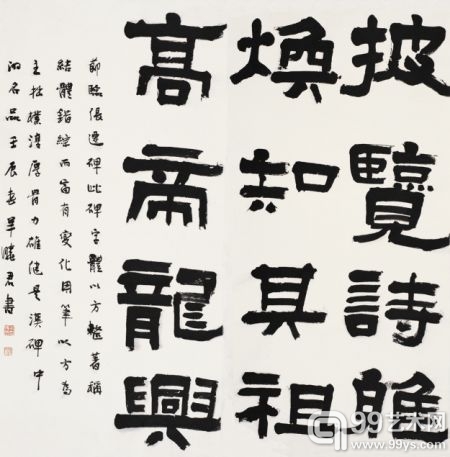 披覽詩雅
煥知其祖
高帝龍興
節臨張遷碑此碑字體以方整著稱
結體錯綜而富有變化用筆以方為
主拙樸淳厚骨力雄健是漢碑中
的名品壬辰春君書
99艺术网
www.99ys.com